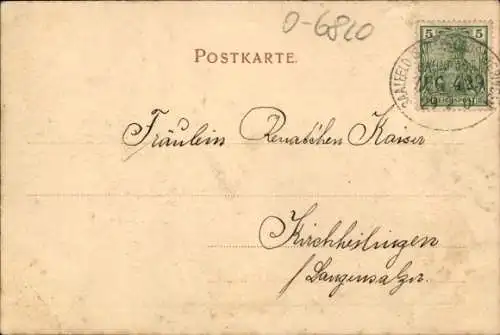 0-6820
POSTKARTE.
5 5
SAALFELD
Fräulein Renatchen Kaiser
Kirchheilingen
b/Langensalza.